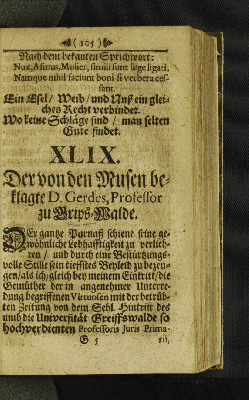 ( 105 )
Nach dem bekanten Sprichwort:
Nux, Asinus, Mulier, simili sunt lege ligati.
Namque nihil faciunt boni si verbera ces-
sant.
Ein Esel / Weib / und Nuß ein glei-
ches Recht verbindet.
Wo keine Schläge sind / man selten
Gute findet.
XLIX.
Der von den Musen be-
klagte D. Gerdes, Professor
zu Grips-Walde.
DEr gantze Parnaß schiene seine ge-
wöhnliche Lebhafftigkeit zu verlieh-
ren / und durch eine Bestürtzungs-
volle Stille sein tieffstes Beyleid zu bezeu-
gen / als ich / gleich bey meinem Eintritt / die
Gemüther der in angenehmer Unterre-
dung begriffenen Virtuosen mit der betrüb-
ten Zeitung von dem Sehl. Hintritt des
umb die Universität Greiffswalde so
hochverdienten Professoris Juris Prima-
G 5
rii,